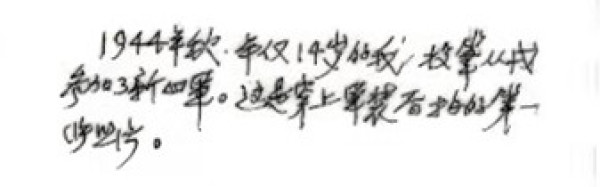 1944年秋.年仅14岁的我,投笔从戎
参加了新四军。这是穿上军装后拍的第一
张照片。